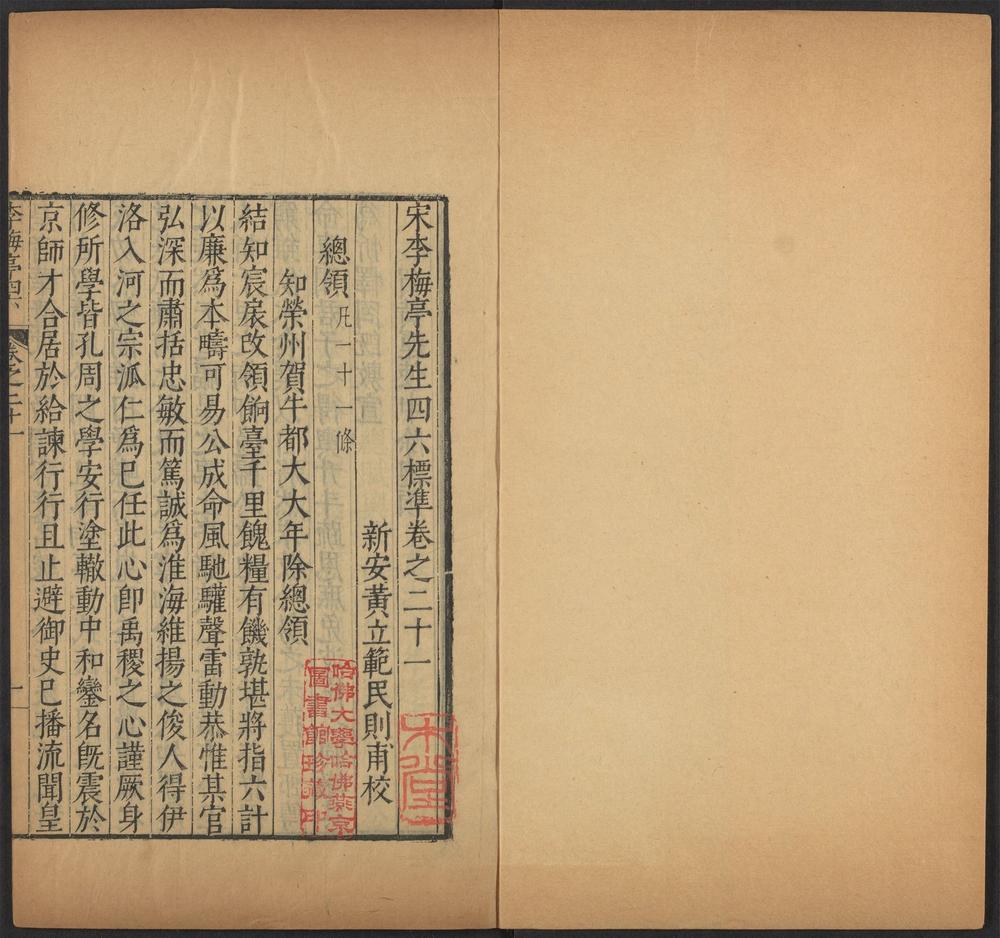 宋李梅亭先生四六標準卷之二十一
新安黃立範民則甫校
總領凡一十一條
知榮州賀牛都大大年除總領
結知宸扆改領餉臺千里餽糧有饑孰堪將指六計
以廉爲本疇可易公成命風馳驩聲雷動恭惟某官
弘深而肅括忠敏而篤誠爲淮海維揚之俊人得伊
洛入河之宗派仁爲已任此心卽禹稷之心謹厥身
修所學皆孔周之學安行塗轍動中和鑾名旣震於
京師才合居於給諫行行且止避御史已播流聞皇
李梅亭四六
卷之二十一
一
哈佛大學哈佛燕京
圖書館珍藏印